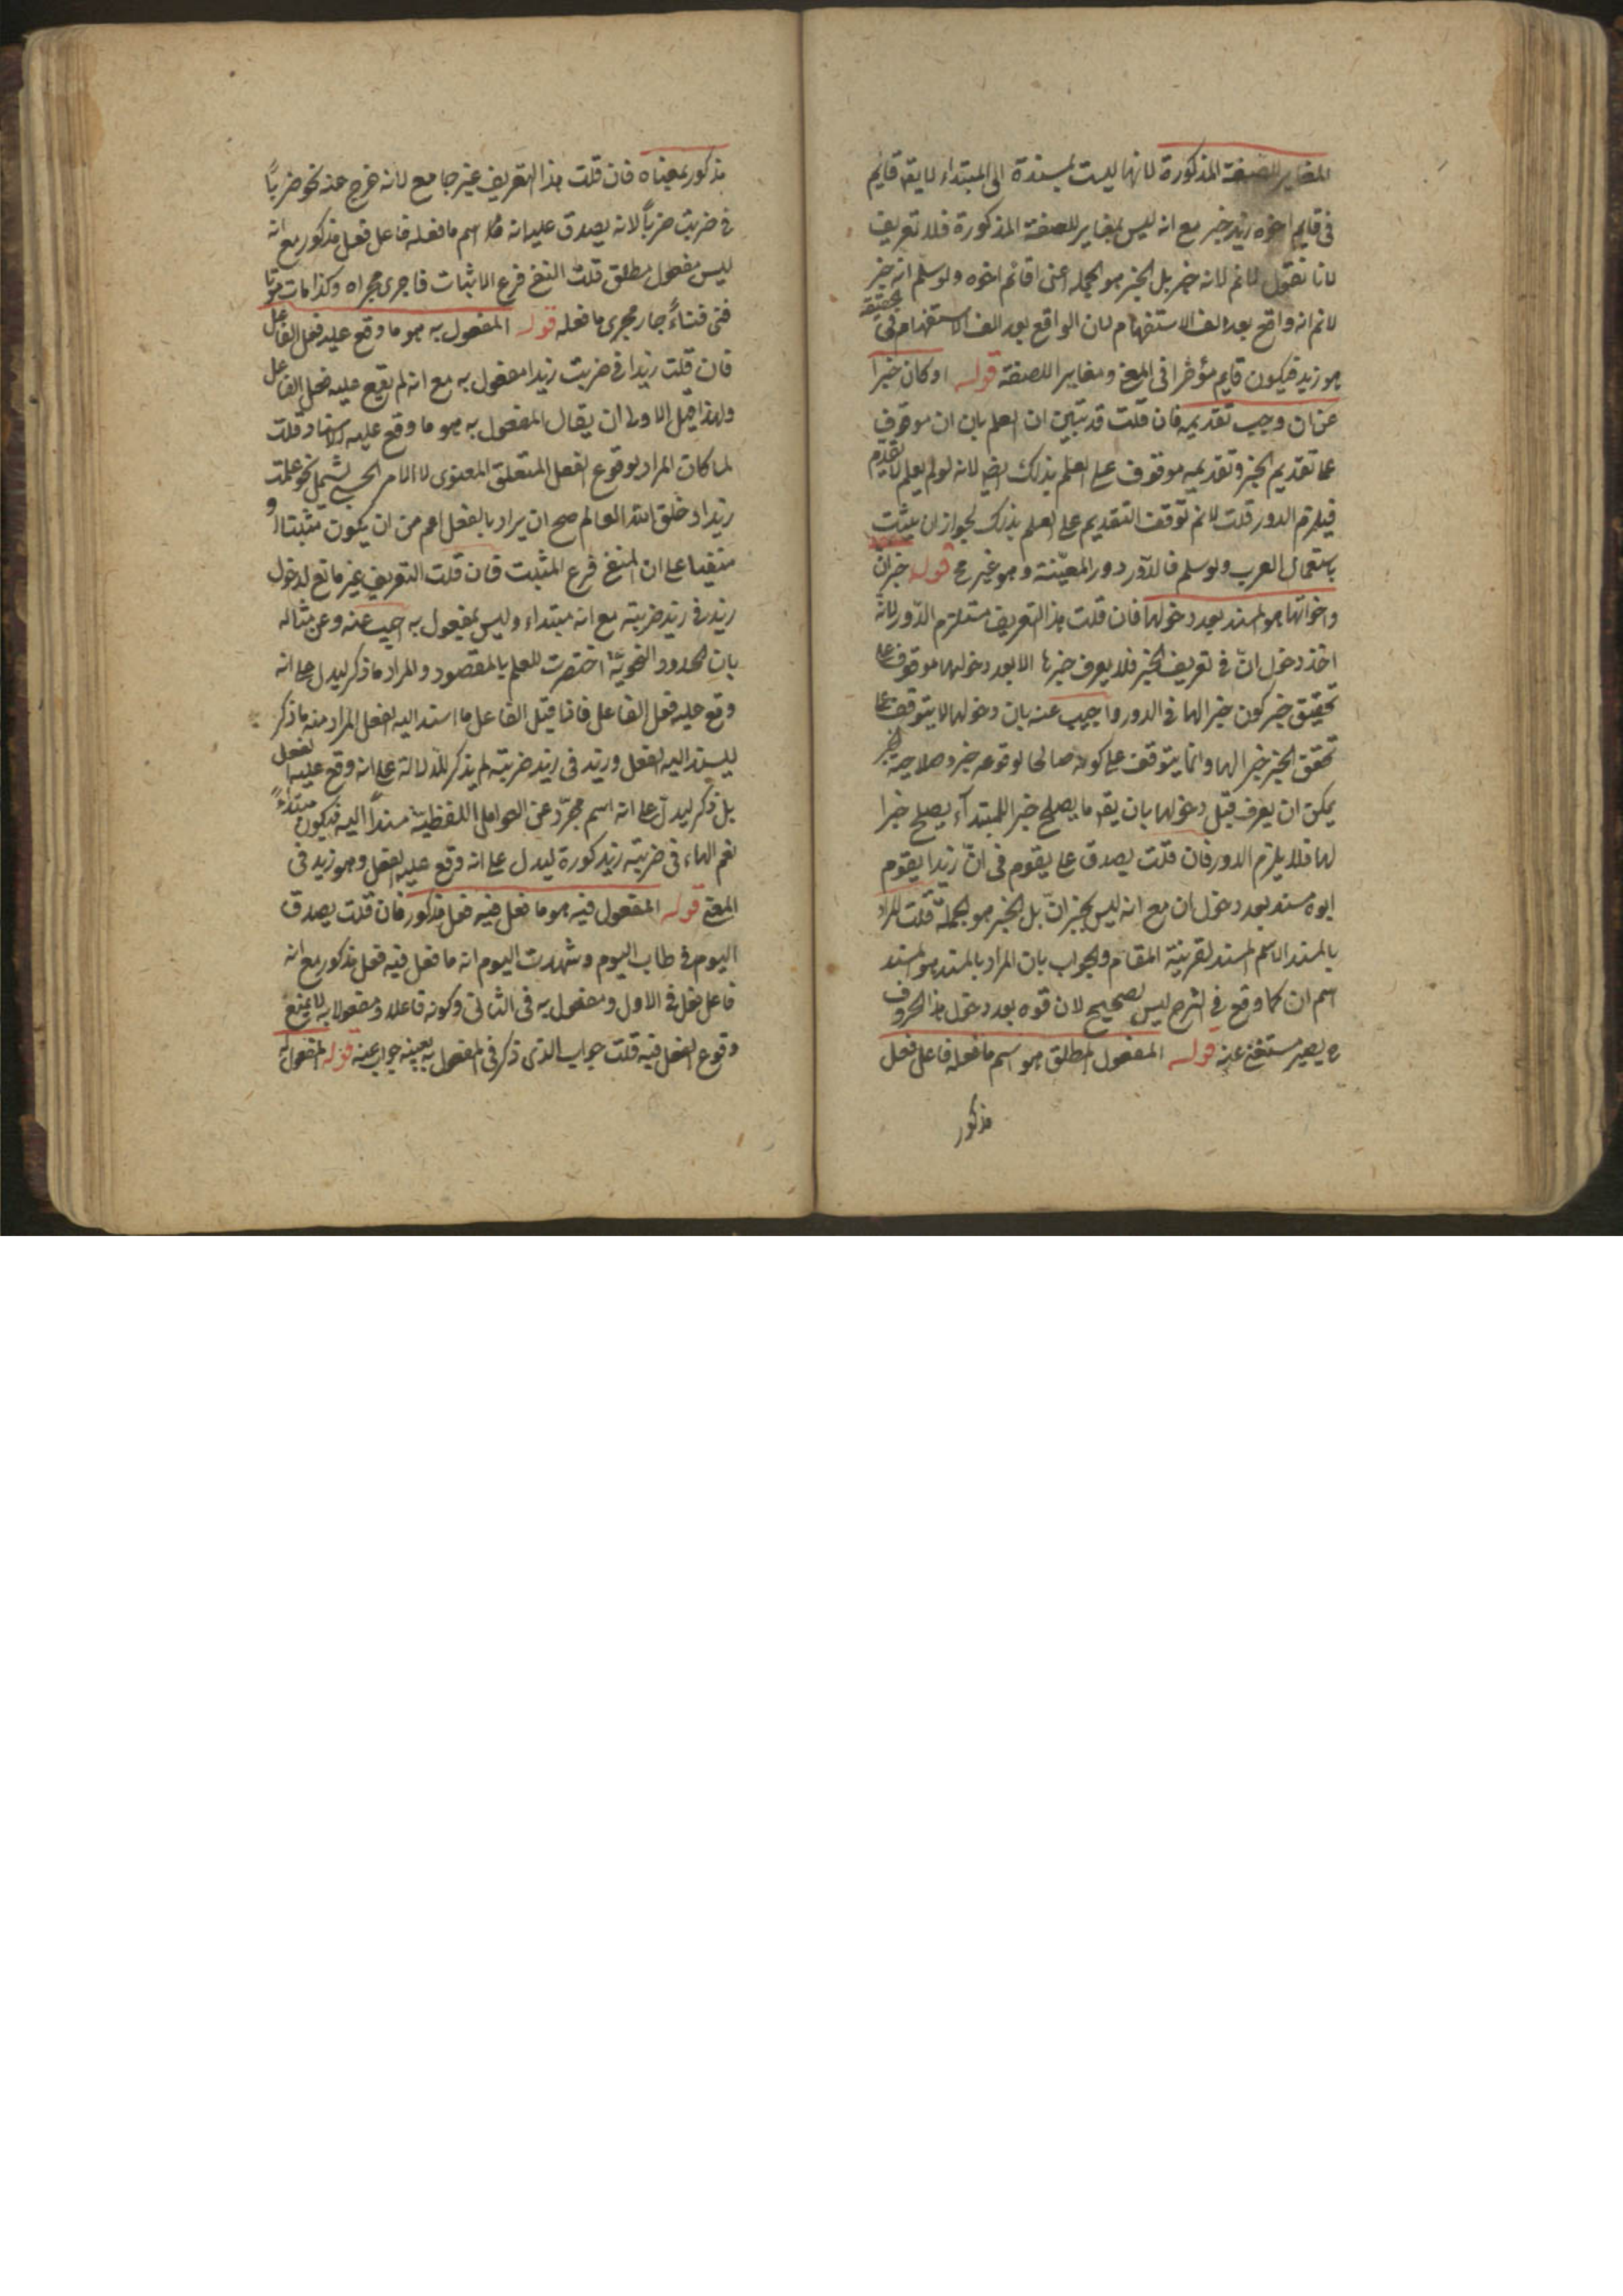 المغاير للصفة المذكورة لانها ليست بمسندة الى المبتداء لا يقه قايم
فى قايم اخوه زيد خبر مع انه ليس بمغاير للصفة المذكورة فلا تعريف
لانا نقول لانم لانه خبر بل الخبر هو الجمله اعنى اقائم اخوه ولو سلم انه خبر
لانم انه واقع بعد الف الاستفهام لان الواقع بعد الف الاستفهام فى الحقيقة
هو زيد فيكون قايم مؤخرا فى المعنى ومغايرا للصفة قوله او كان خبرا
عن ان وجب تقديمه فان قلت قد تبين ان العلم بان ان موقوف
على تقديم الخبر وتقديمه موقوف على العلم بذلك ايض لانه لو لم يعلم لا يقدم
فيلزم الدور قلت لانم توقف التقديم على العلم بذلك لجواز ان يثبت
باستعمال العرب ولو سلم فالدور دور المعينة وهو غير مح قوله خبر ان
واخواتها هو المسند بعد دخولها فان قلت هذا التعريف مستلزم الدور لانه
اخذ دخول ان فى تعريف الخبر فلا يعرف خبرها الا بعد دخولها موقوف على
تحقيق خبر كون خبرا لها فى الدور واجيب عنه بان دخولها لا يتوقف على
تحقق الخبر خبرا لها وانما يتوقف على كونه صالحا لوقوعه خبر وصلاحية الخبر
يمكن ان يعرف قبل دخولها بان يقه ما يصلح خبرا للمبتدآء يصلح خبرا
لها فلا يلزم الدور فان قلت يصدق على يقوم فى ان زيدا يقوم
ابوه مسند بعد دخول ان مع انه ليس بخبر ان بل الخبر هو الجملة قلت المراد
بالمسند الاسم المسند لقرينة المقام والجواب بان المراد بالمسند هو المسند
اسم ان كما وقع فى الشرح ليس بصحيح لان قوه بعد دخول هذا الحروف
ح يصير مستغنى عنه قوله المفعول المطلق هو اسم ما فعله فاعل فعل
مذكور
مذكور بمعناه فان قلت هذا التعريف غير جامع لانه خرج عنه نحو ضربًا
فى ضربت ضربًا لانه يصدق عليه انه اسم ما فعله فاعل فعل مذكور مع انه
ليس مفعول مطلق قلت النفى فرع الاثبات فاجرى مجراه وكذا مات موتا
فنى فناءً جار مجرى ما فعله قوله المفعول به هو ما وقع عليه فعل الفاعل
فان قلت زيدا فى ضربت زيدا مفعول به مع انه لم يقع عليه فعل الفاعل
ولهذا قيل الاولى ان يقال المفعول به هو ما وقع عليه الاسناد قلت
لما كان المراد بوقوع الفعل المتعلق المعنوى لا الامر الحسى ليشمل نحو علمت
زيدا وخلق الله العالم صح ان يراد بالفعل اعم من ان يكون مثبتا او
منفيا على ان المنفى فرع المثبت فان قلت التعريف غير مانع لدخول
زيد فى زيد ضربته مع انه مبتداء وليس بمفعول به اجيب عنه وعن مثاله
بان الحدود النحوية اختصرت للعلم بالمقصود والمراد ما ذكر ليدل على انه
وقع عليه فعل الفاعل فاذا قيل الفاعل ما اسند اليه الفعل المراد منه ما ذكر
ليسند اليه الفعل وزيد فى زيد ضربته لم يذكر للدلالة على انه وقع عليه الفعل
بل ذكر ليدل على انه اسم مجرد عن العوامل اللفظية مسندًا اليه فيكون مبتداءً
نعم الهاء فى ضربته زيد كورة ليدل على انه وقع عليه الفعل وهو زيد فى
المعنى قوله المفعول فيه هو ما فعل فيه فعل مذكور فان قلت يصدق
اليوم فى طاب اليوم وشهدت اليوم انه ما فعل فيه فعل مذكور مع انه
فاعل فعل فى الاول ومفعول به فى الثانى وكونه فاعلا ومفعولا به لا يمنع
وقوع الفعل فيه قلت جواب الذى ذكر فى المفعول به بعينه جواب عنه قوله المفعول له